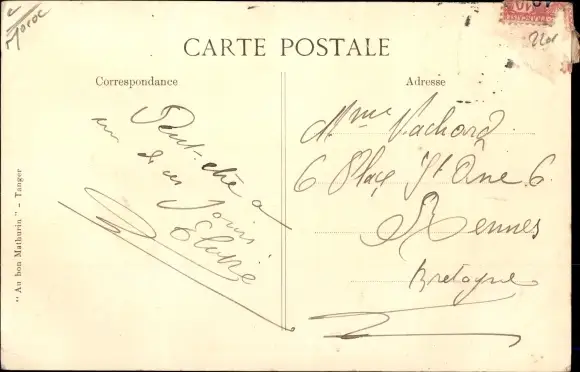 Maroc
CARTE POSTALE
Correspondance
Peut-être a
un de ces
jours
Adresse
Mme Vachard
6 Place Ste Anne 6
Rennes
Bretagne
"Au bon Mathurin" - Tanger